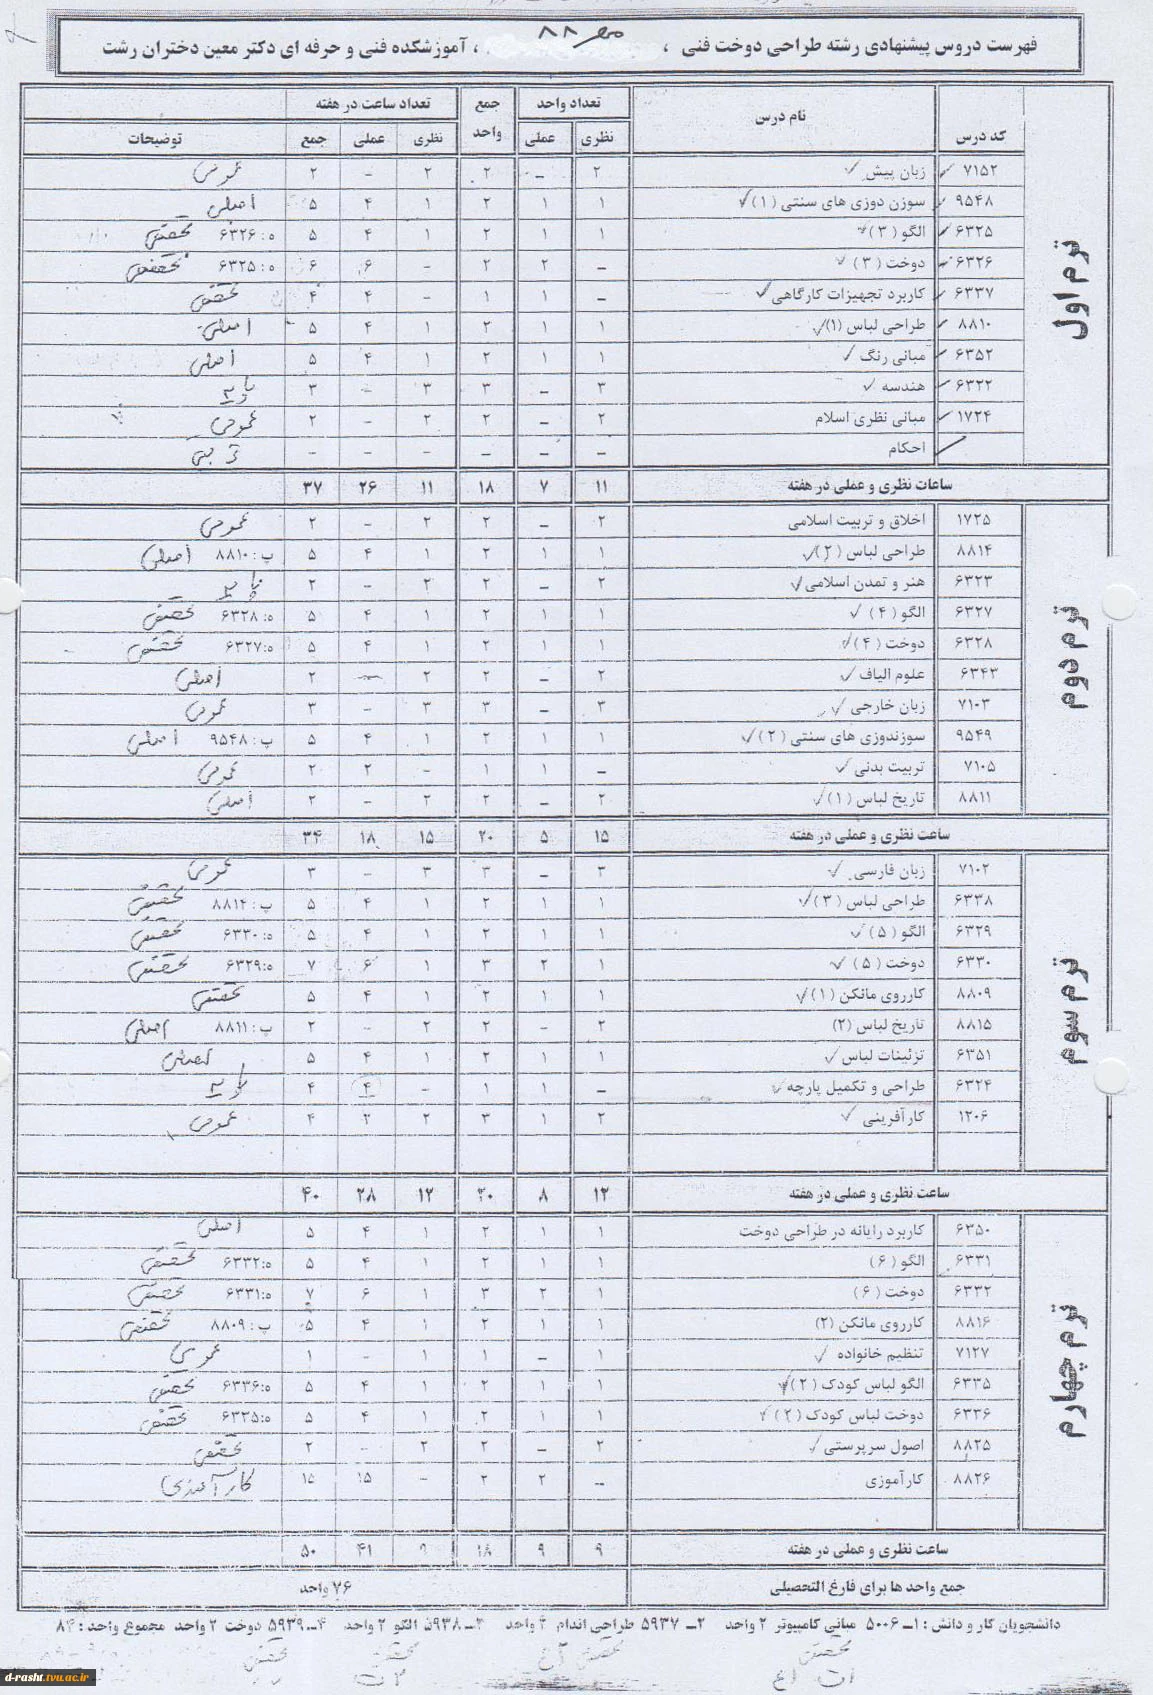 مهر ۸۸
فهرست دروس پیشنهادی رشته طراحی دوخت فنی ، ، آموزشکده فنی و حرفه ای دکتر معین دختران رشت
کد درس نام درس تعداد واحد جمع واحد تعداد ساعت در هفته
نظری عملی نظری عملی جمع توضیحات
ترم اول
۷۱۵۲ زبان پیش ۲ – ۲ ۲ – ۲ عمومی
۹۵۴۸ سوزن دوزی های سنتی (۱) ۱ ۱ ۲ ۱ ۴ ۵ اصلی
۶۳۲۵ الگو (۳) ۱ ۱ ۲ ۱ ۴ ۵ ه: ۶۳۲۶ تخصصی
۶۳۲۶ دوخت (۳) – ۲ ۲ – ۶ ۶ ه: ۶۳۲۵ تخصصی
۶۳۳۷ کاربرد تجهیزات کارگاهی – ۱ ۱ – ۴ ۴ تخصصی
۸۸۱۰ طراحی لباس (۱) ۱ ۱ ۲ ۱ ۴ ۵ اصلی
۶۳۵۲ مبانی رنگ ۱ ۱ ۲ ۱ ۴ ۵ اصلی
۶۳۲۲ هندسه ۳ – ۳ ۳ – ۳ پایه
۱۷۲۴ مبانی نظری اسلام ۲ – ۲ ۲ – ۲ عمومی
احکام – – – – – –
ساعات نظری و عملی در هفته ۱۱ ۷ ۱۸ ۱۱ ۲۶ ۳۷
ترم دوم
۱۷۲۵ اخلاق و تربیت اسلامی ۲ – ۲ ۲ – ۲ عمومی
۸۸۱۴ طراحی لباس (۲) ۱ ۱ ۲ ۱ ۴ ۵ پ: ۸۸۱۰ اصلی
۶۳۲۳ هنر و تمدن اسلامی ۲ – ۲ ۲ – ۲ پایه
۶۳۲۷ الگو (۴) ۱ ۱ ۲ ۱ ۴ ۵ ه: ۶۳۲۸ تخصصی
۶۳۲۸ دوخت (۴) ۱ ۱ ۲ ۱ ۴ ۵ ه: ۶۳۲۷ تخصصی
۶۳۴۳ علوم الیاف ۲ – ۲ ۲ – ۲ اصلی
۷۱۰۳ زبان خارجی ۳ – ۳ ۳ – ۳ عمومی
۹۵۴۹ سوزندوزی های سنتی (۲) ۱ ۱ ۲ ۱ ۴ ۵ پ: ۹۵۴۸ اصلی
۷۱۰۵ تربیت بدنی – ۱ ۱ – ۲ ۲ عمومی
۸۸۱۱ تاریخ لباس (۱) ۲ – ۲ ۲ – ۲ اصلی
ساعت نظری و عملی در هفته ۱۵ ۵ ۲۰ ۱۵ ۱۸ ۳۴
ترم سوم
۷۱۰۲ زبان فارسی ۳ – ۳ ۳ – ۳ عمومی
۶۳۳۸ طراحی لباس (۳) ۱ ۱ ۲ ۱ ۴ ۵ پ: ۸۸۱۴ تخصصی
۶۳۲۹ الگو (۵) ۱ ۱ ۲ ۱ ۴ ۵ ه: ۶۳۳۰ تخصصی
۶۳۳۰ دوخت (۵) ۱ ۲ ۳ ۱ ۶ ۷ ه: ۶۳۲۹ تخصصی
۸۸۰۹ کارروی مانکن (۱) ۱ ۱ ۲ ۱ ۴ ۵ تخصصی
۸۸۱۵ تاریخ لباس (۲) ۲ – ۲ ۲ – ۲ پ: ۸۸۱۱ اصلی
۶۳۵۱ تزئینات لباس ۱ ۱ ۲ ۱ ۴ ۵ اصلی
۶۳۲۴ طراحی و تکمیل پارچه – ۱ ۱ – ۴ ۴ پایه
۱۲۰۶ کارآفرینی ۲ ۱ ۳ ۲ ۲ ۴ عمومی
ساعت نظری و عملی در هفته ۱۲ ۸ ۲۰ ۱۲ ۲۸ ۴۰
ترم چهارم
۶۳۵۰ کاربرد رایانه در طراحی دوخت ۱ ۱ ۲ ۱ ۴ ۵ اصلی
۶۳۳۱ الگو (۶) ۱ ۱ ۲ ۱ ۴ ۵ ه: ۶۳۳۲ تخصصی
۶۳۳۲ دوخت (۶) ۱ ۲ ۳ ۱ ۶ ۷ ه: ۶۳۳۱ تخصصی
۸۸۱۶ کارروی مانکن (۲) ۱ ۱ ۲ ۱ ۴ ۵ پ: ۸۸۰۹ تخصصی
۷۱۲۷ تنظیم خانواده ۱ – ۱ ۱ – ۱ عمومی
۶۳۳۵ الگو لباس کودک (۲) ۱ ۱ ۲ ۱ ۴ ۵ ه: ۶۳۳۶ تخصصی
۶۳۳۶ دوخت لباس کودک (۲) ۱ ۱ ۲ ۱ ۴ ۵ ه: ۶۳۳۵ تخصصی
۸۸۲۵ اصول سرپرستی ۲ – ۲ ۲ – ۲ تخصصی
۸۸۲۶ کارآموزی – ۲ ۲ – ۱۵ ۱۵ کارآموزی
ساعت نظری و عملی در هفته ۹ ۹ ۱۸ ۹ ۴۱ ۵۰
جمع واحد ها برای فارغ التحصیلی ۷۶ واحد
دانشجویان کار و دانش : ۱ـ ۵۰۰۶ مبانی کامپیوتر ۲ واحد ۲ـ ۵۹۳۷ طراحی اندام ۲ واحد ۳ـ ۵۹۳۸ الگو ۲ واحد ۴ـ ۵۹۳۹ دوخت ۲ واحد مجموع واحد : ۸۴
تخصصی تخصصی تخصصی
d-rasht.tvu.ac.ir